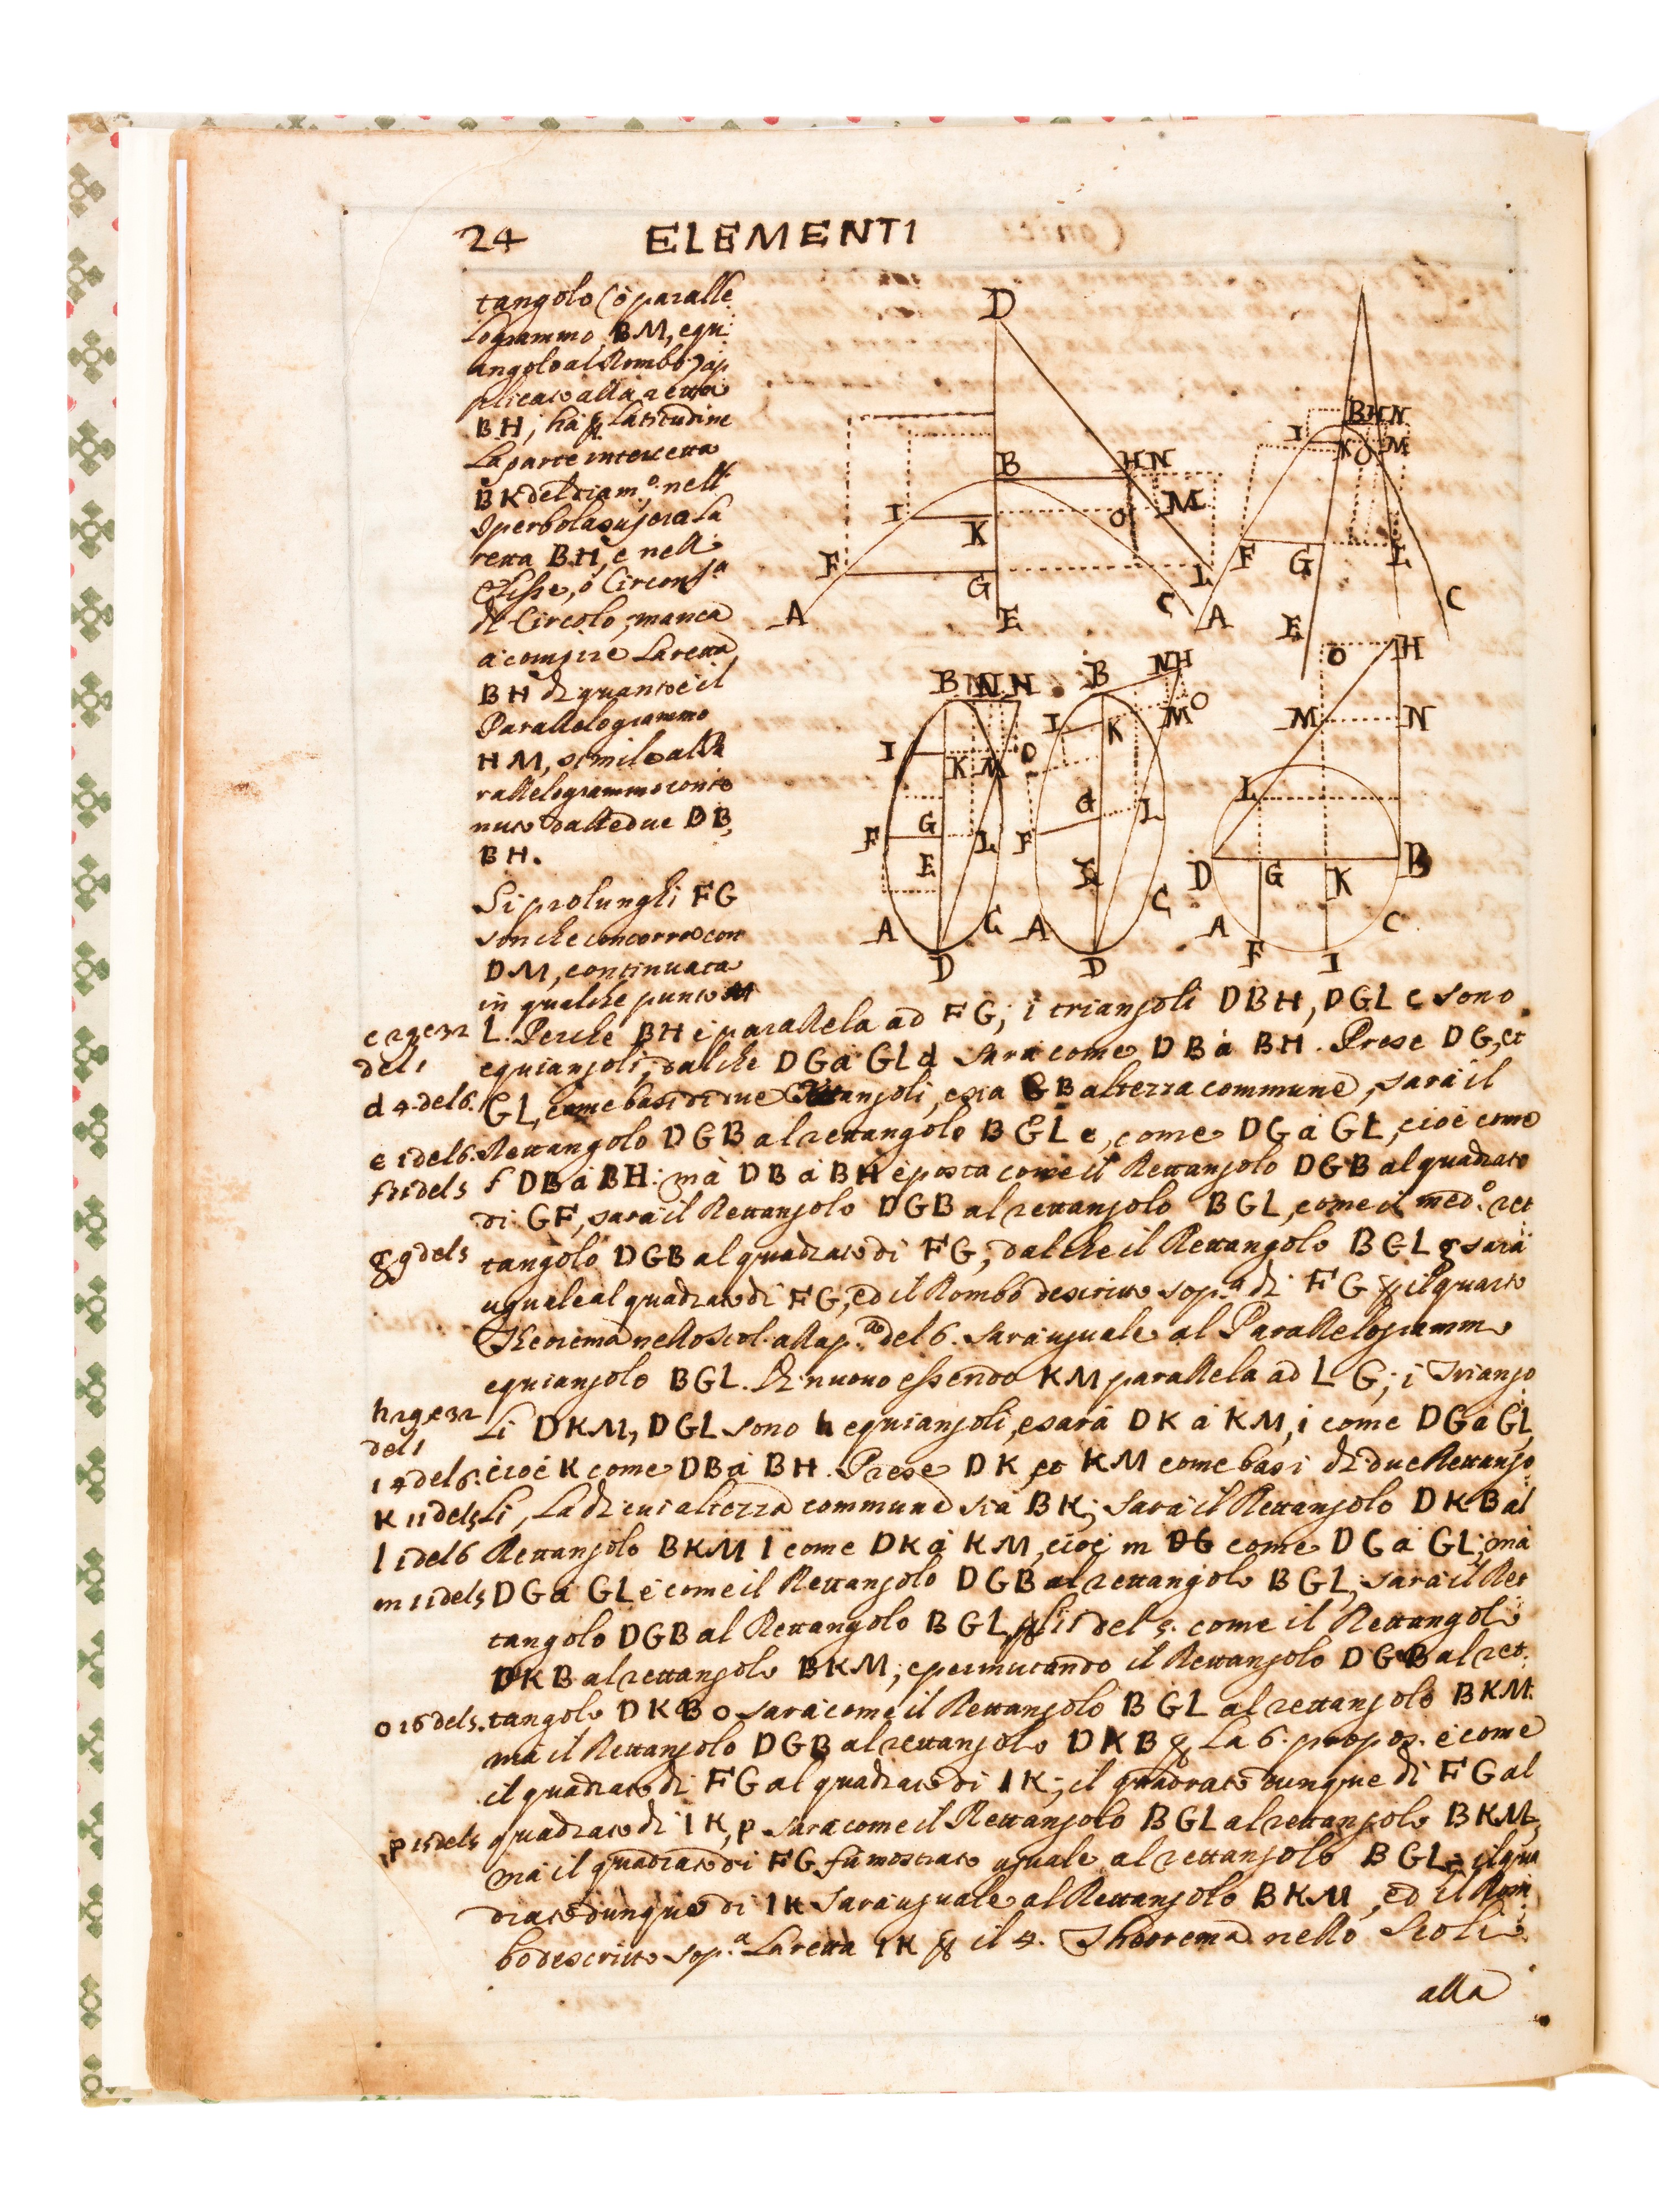 24 ELEMENTI
tangolo (ò paralle
logrammo BM, equi
angolo al Rombo) ap
plicato alla retta
BH, hà ꝑ Latitudine
La parte intercetta
BK del diam.o, nell'
Iperbola supera La
retta BH, e nell'
Elisse, ò Circonf.a
di Circolo, manca
a compire La retta
BH di quanto è il
Parallelogrammo
HM, simile al Pa
rallelogrammo conte
nuto dalle due DB,
BH.
Si prolunghi FG
sin che concorra con
DM, continuata
in qualche punto
L. Perche BH è parallela ad FG; i trianjoli DBH, DGL c sono
equianjoli, dalche DG à GL d sarà come DB à BH. Prese DG, et
GL, come basi di due Rettanjoli, e sia GB altezza commune, sarà il
Rettangolo DGB al rettangolo BGL e, come DG à GL, cioè come
f DB à BH: mà DB à BH è posta come il Rettanjolo DGB al quadrato
di GF, sarà il Rettanjolo DGB al rettanjolo BGL, come il med.o ret
tangolo DGB al quadrato di FG; dalche il Rettangolo BGL g sarà
uguale al quadrato di FG, ed il Rombo descritto sop.a di FG ꝑ il quarto
Theorema nello Scol. alla p. del 6. sarà uguale al Parallelogrammo
equianjolo BGL. Di nuovo essendo KM parallela ad LG; i Trianjo
li DKM, DGL sono h equianjoli, e sarà DK à KM, i come DG à GL,
cioè K come DB à BH. Prese DK, et KM come basi di due Rettanjo
li, La di cui altezza commune sia BK; sarà il Rettanjolo DKB al
Rettanjolo BKM l come DK à KM, cioè m come DG à GL; mà
DG à GL è come il Rettanjolo DGB al rettangolo BGL; sarà il Ret
tangolo DGB al Rettangolo BGL, ꝑ l'11 del 5. come il Rettangolo
DKB al rettanjolo BKM; e permutando il Rettanjolo DGB al ret
tangolo DKB o sarà come il Rettanjolo BGL al rettanjolo BKM.
mà il Rettanjolo DGB al rettanjolo DKB ꝑ La 6. propos. è come
il quadrato di FG al quadrato di IK; il quadrato dunque di FG al
quadrato di IK, p sarà come il Rettanjolo BGL al rettanjolo BKM,
mà il quadrato di FG fù mostrato uguale al rettanjolo BGL; il qua
drato dunque di IK sarà uguale al Rettanjolo BKM, ed il Rom
bo descritto sop.a La retta IK ꝑ il 4. Theorema nello Scolio
alla
c 29 e 32
del 1
d 4. del 6.
e 1 del 6.
f 11 del 5
g 9 del 5
h 29 e 32
del 1
i 4 del 6.
K 11 del 5
l 1 del 6
m 11 del 5
o 16 del 5.
p 15 del 5
D
B H N
I K O M
F G L
A E C
B H N
I K O M
F G L
A E C
B M N H
I K M O
F G L
E
A D C
B N H
I K M O
F G L
A D C
O H
M N
L
D G K B
A F I C